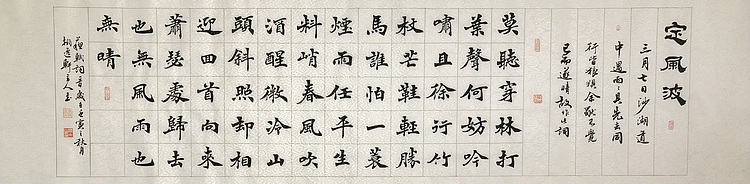 定風波
三月七日沙湖道
中遇雨〻具先去同
行皆狼狽余獨不覺
已而遂晴故作此詞
莫聽穿林打
葉聲何妨吟
嘯且徐行竹
杖芒鞋輕勝
馬誰怕一蓑
煙雨任平生
料峭春風吹
酒醒微冷山
頭斜照却相
迎回首向來
蕭瑟處歸去
也無風雨也
無晴
蘇軾詞首歲寅之秋月
軒主人書